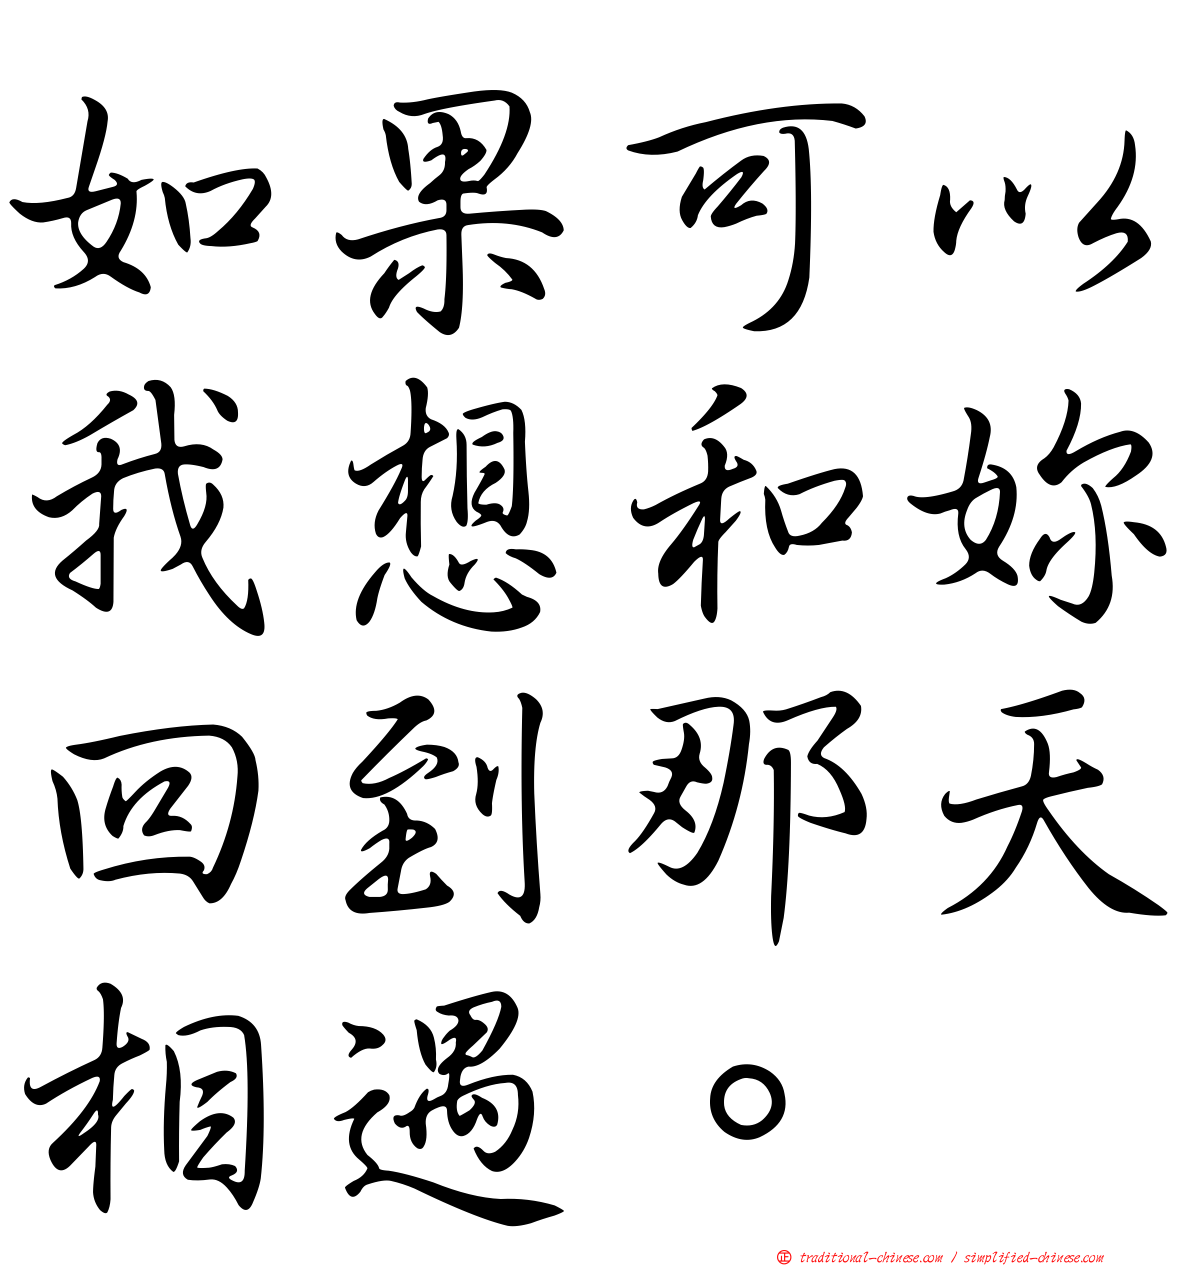 如果可以
我想和妳
回到那天
相遇。
正 traditional-chinese.com / simplified-chinese.com